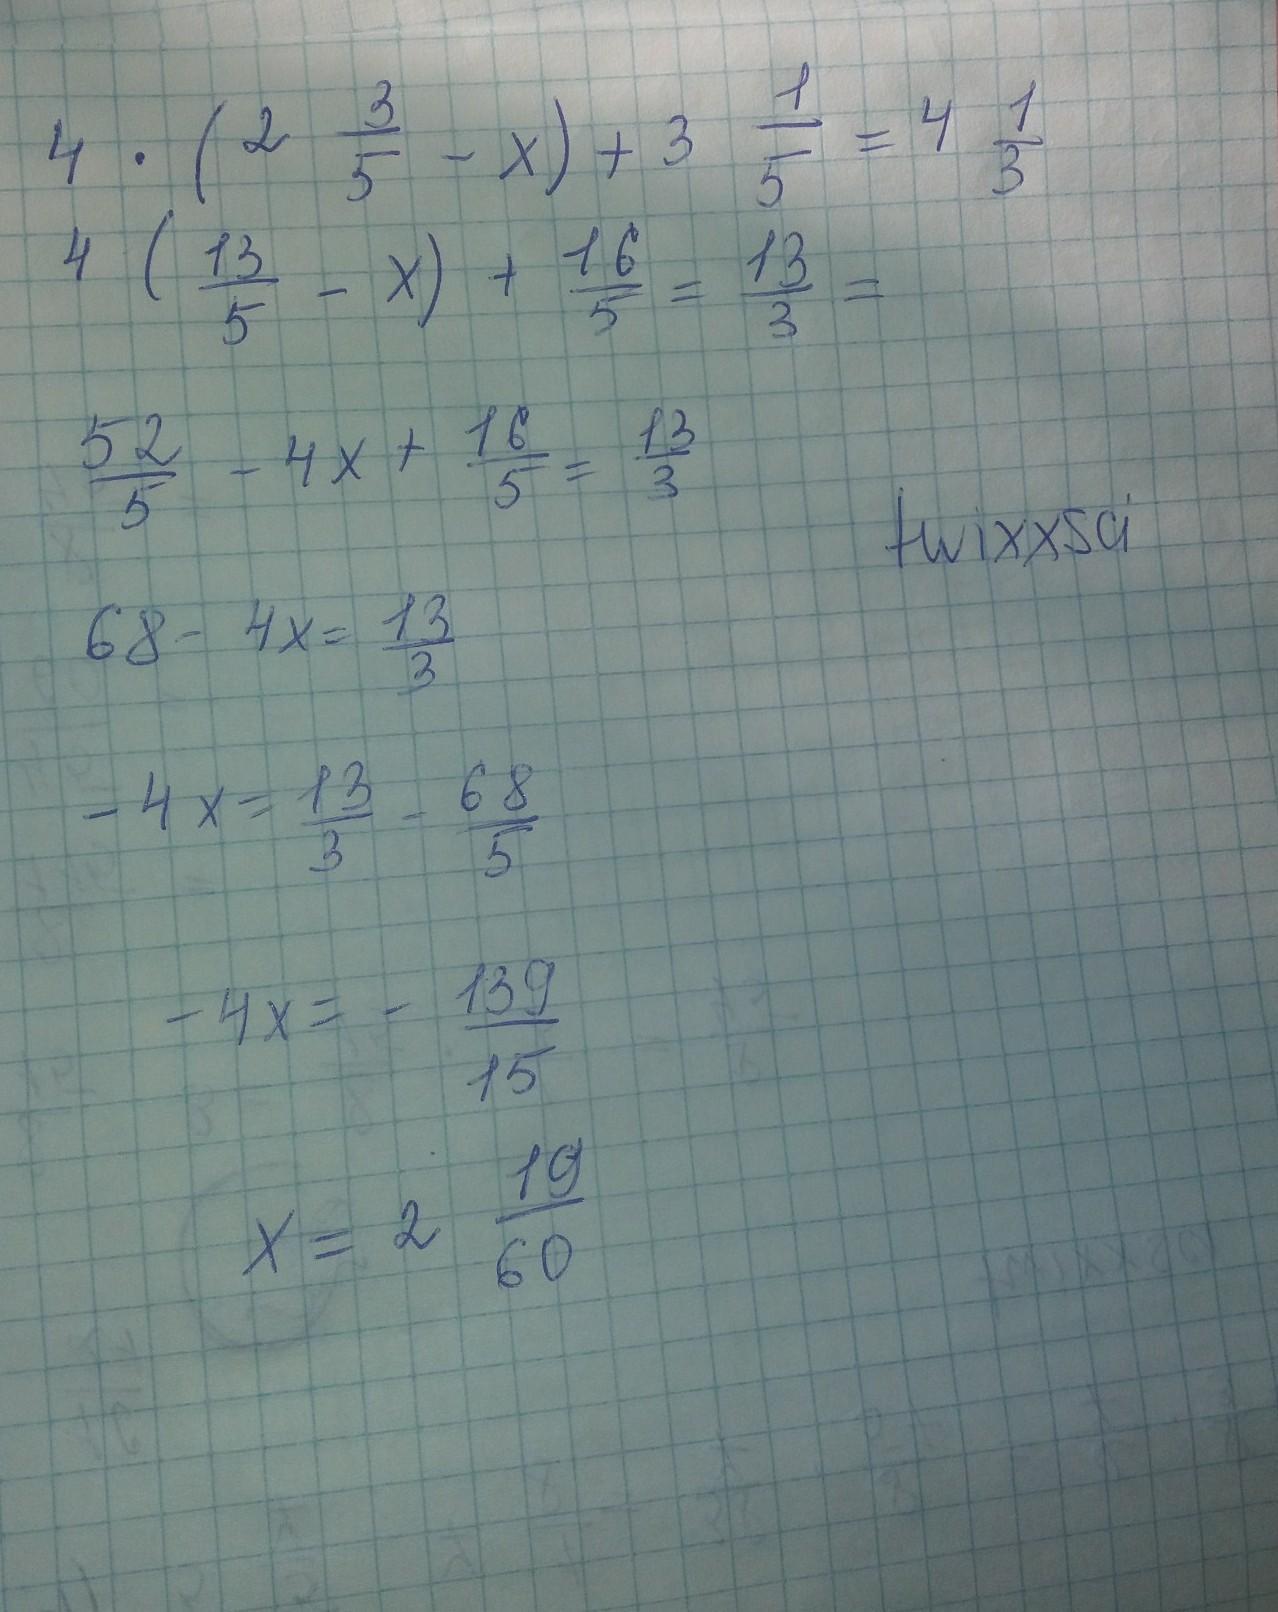 4 · (2 3/5 - x) + 3 1/5 = 4 1/3
4 (13/5 - x) + 16/5 = 13/3 =
52/5 - 4x + 16/5 = 13/3
twixxsa
68 - 4x = 13/3
-4x = 13/3 - 68/5
-4x = - 139/15
x = 2 19/60